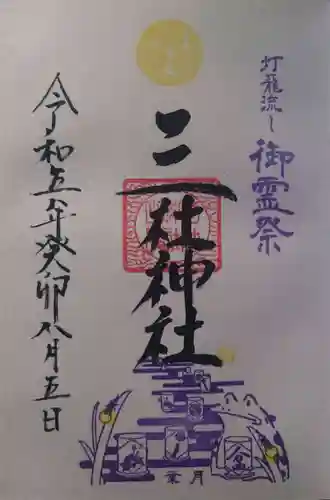 灯籠流し
御霊祭
三杜神社
令和五年癸卯八月五日
葉月